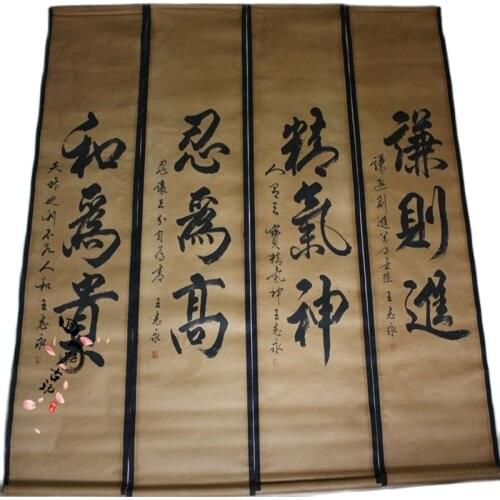 謙則進
王志永
精氣神
人有三寶精氣神 王志永
忍爲高
忍讓三分自爲高 王志永
和爲貴
天時地利不如人和 王志永